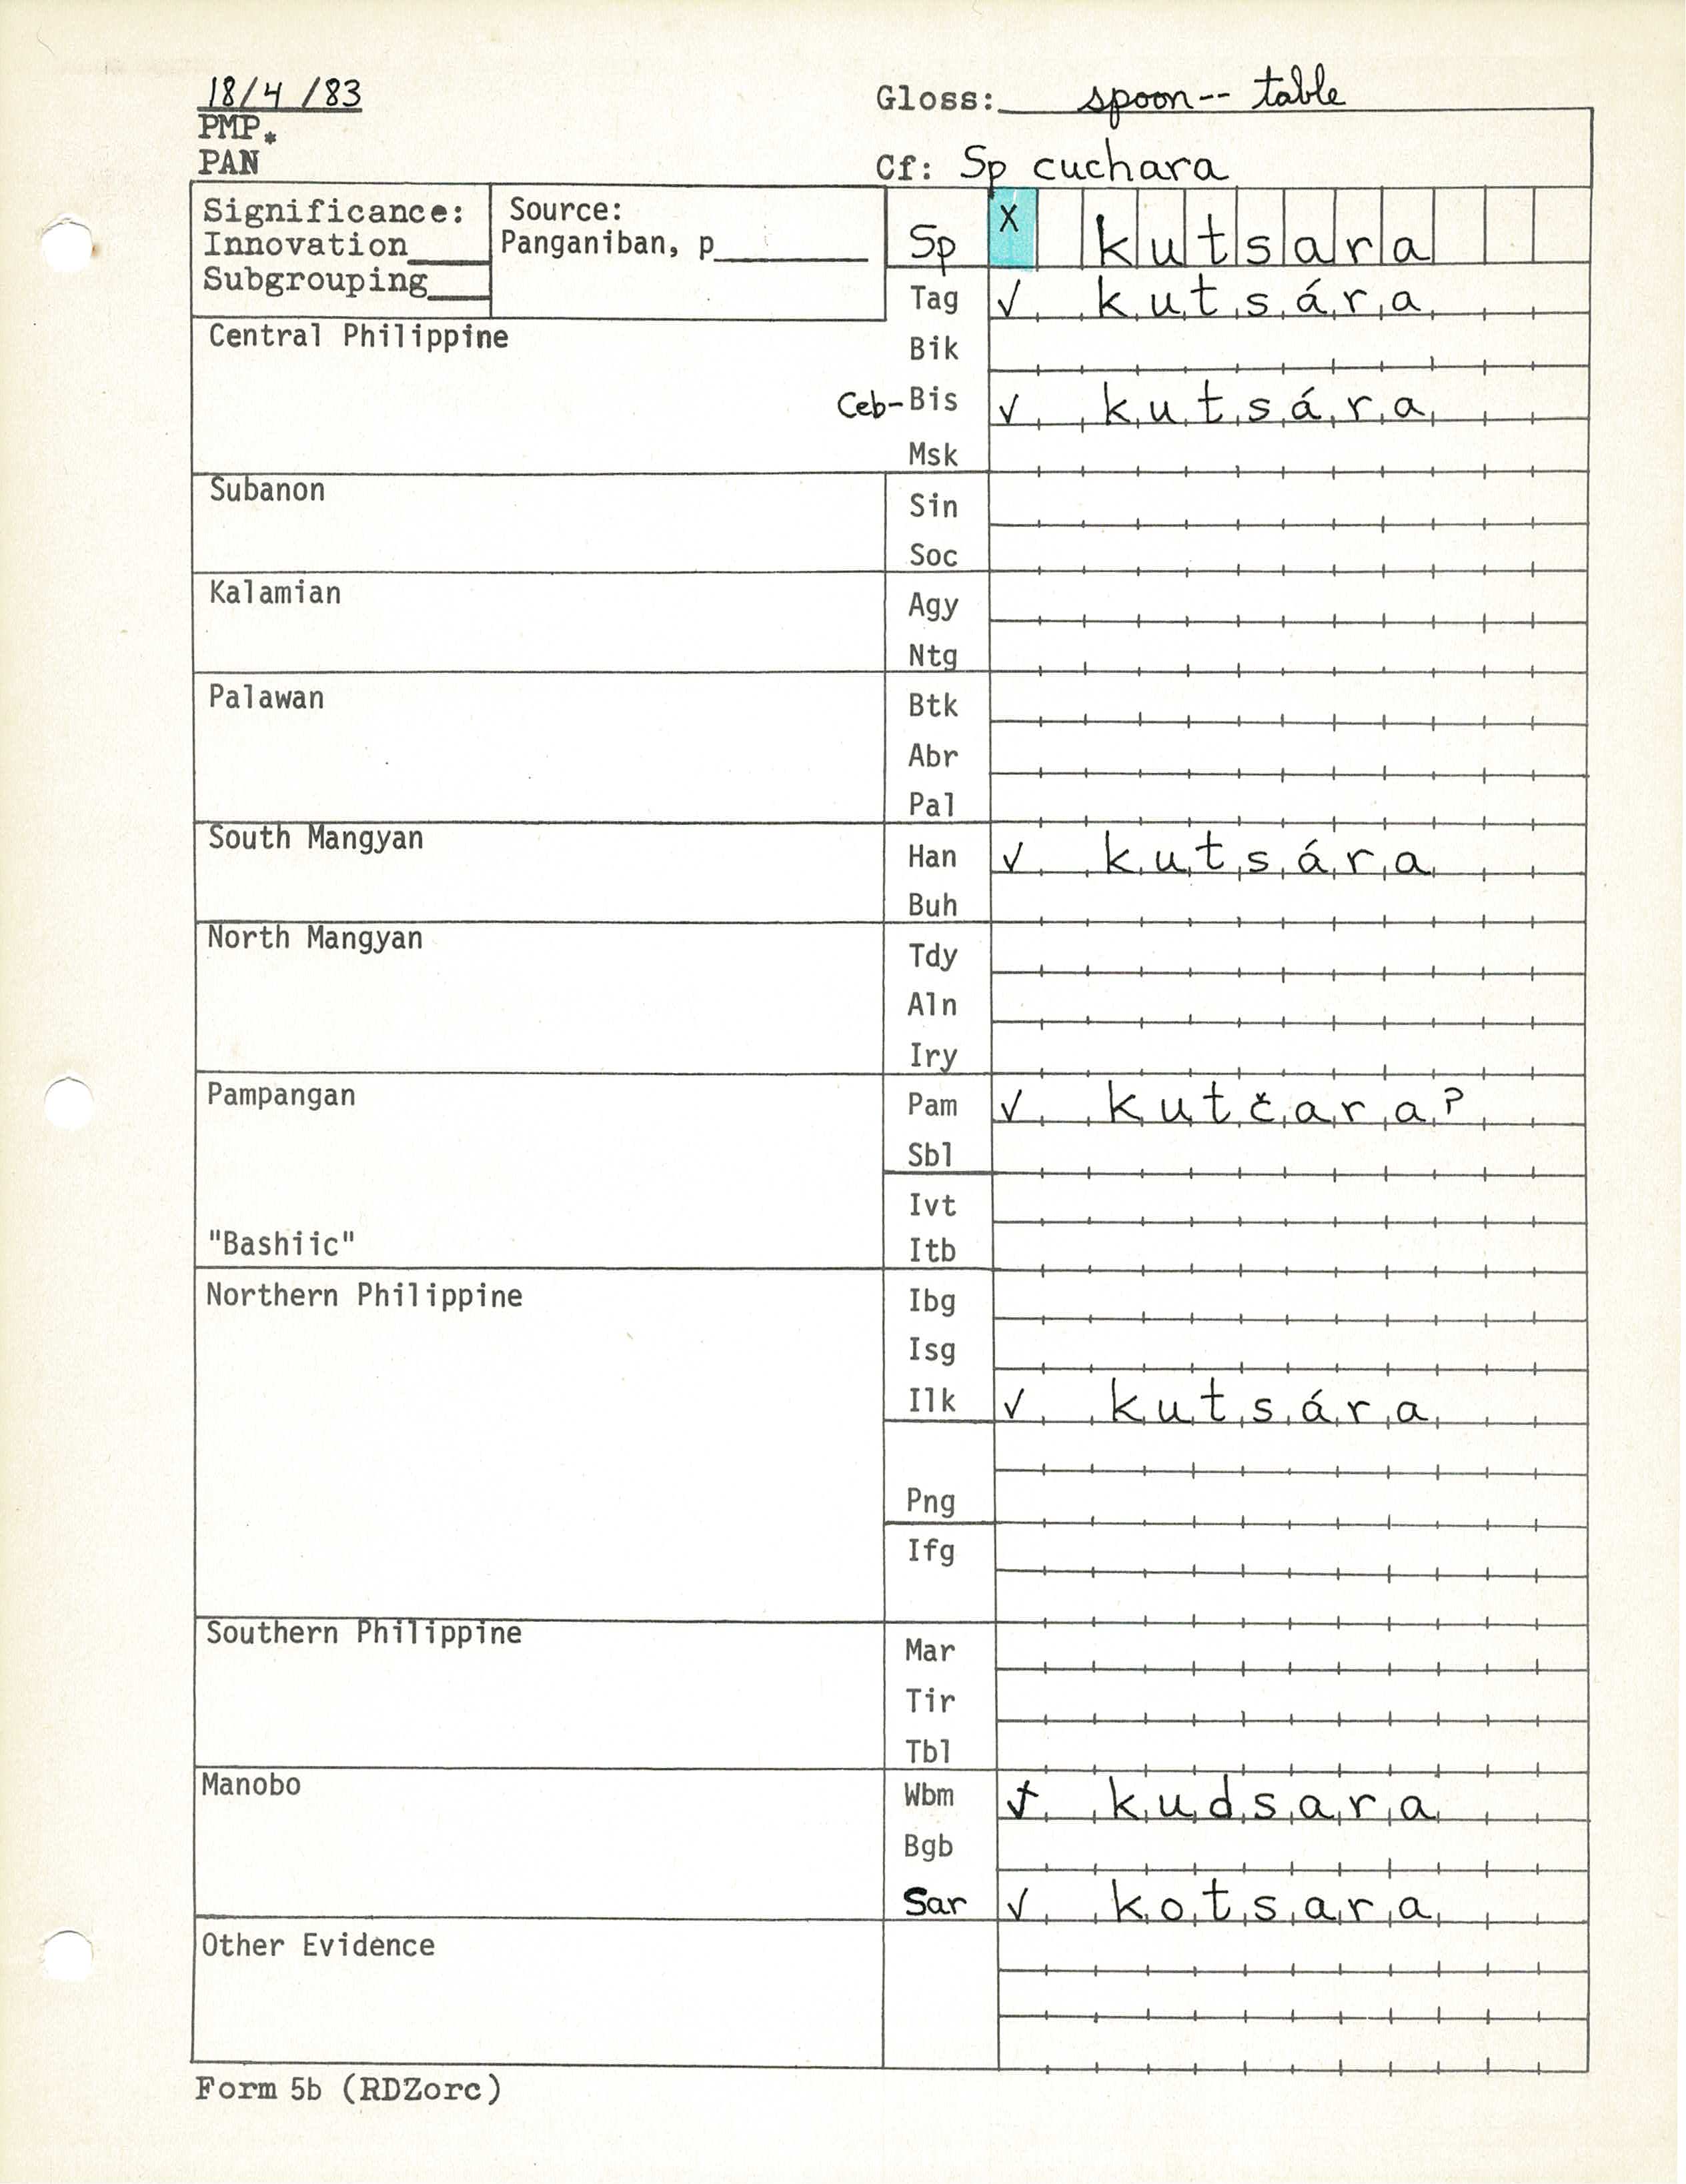 18/4/83
Gloss: spoon-- table
PMP*
PAN
Cf: Sp cuchara
Significance:
Innovation____
Subgrouping____
Source:
Panganiban, p________
Sp X kutsara
Tag ✓ kutsára
Central Philippine
Bik
Ceb-Bis ✓ kutsára
Msk
Subanon
Sin
Soc
Kalamian
Agy
Ntg
Palawan
Btk
Abr
Pal
South Mangyan
Han ✓ kutsára
Buh
North Mangyan
Tdy
Aln
Iry
Pampangan
Pam ✓ kutčara?
Sbl
Ivt
"Bashiic"
Itb
Northern Philippine
Ibg
Isg
Ilk ✓ kutsára
Png
Ifg
Southern Philippine
Mar
Tir
Tbl
Manobo
Wbm ✓ kudsara
Bgb
Sar ✓ kotsara
Other Evidence
Form 5b (RDZorc)